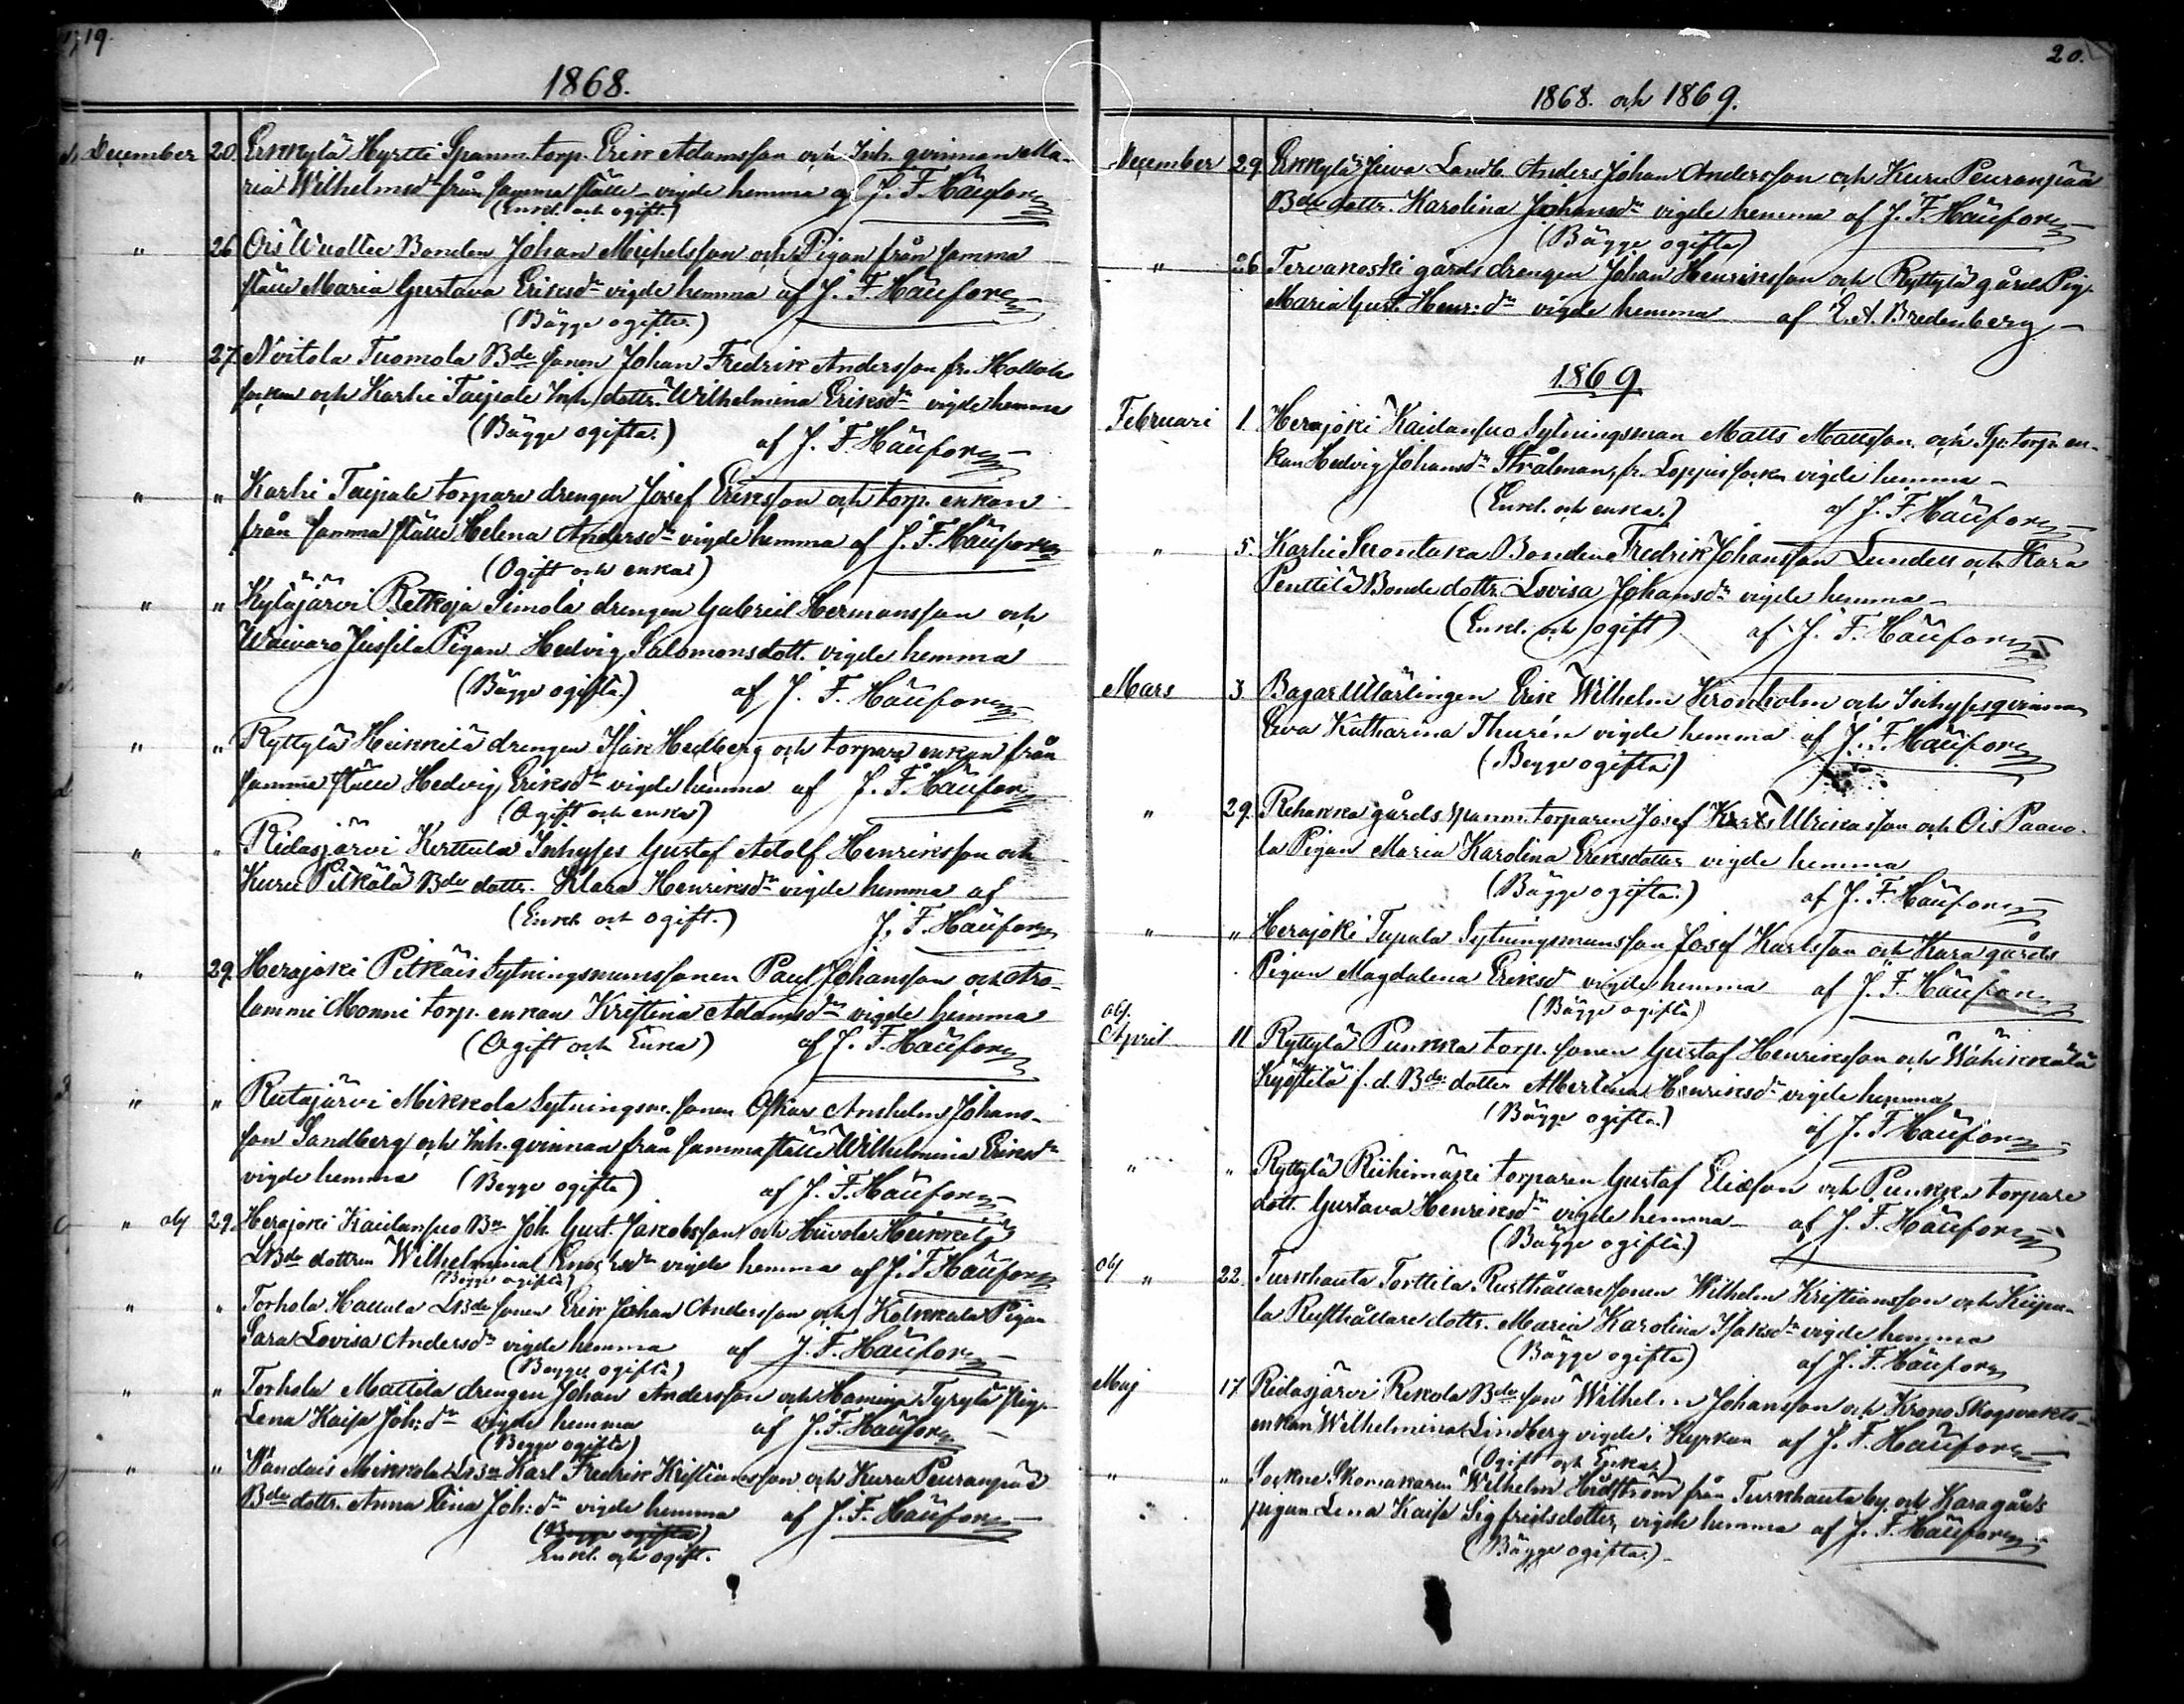 19.
1868.
December 20. Erkkylä Hyrtti Spanm. torp. Erik Adamsson och Inh. qvinnan Ma-
ria Wilhelmsdr från samma ställe vigde hemma af J. F. Häufor
(Enkl. och ogift.)
" 26 Ois Wuolle Bonden Johan Michelsson och Pigan från samma
ställe Maria Gustava Eriksdr vigde hemma af J. F. Häufor
(Bägge ogifte.)
" 27. Tuomola Bde sonen Johan Fredrik Andersson fr. Hollola
socken och Karhi Taipale Inh. dottr. Wilhelmina Eriksdr vigde hemma
(Bägge ogifta.) af J. F. Häufor
" " Karhi Taipale torpare drengen Josef Eriksson och torp. enkan
från samma ställe Helena Andersdr vigde hemma af J. F. Häufor
(Ogift och enka)
" " Kyläjärvi Retkoja Simola drengen Gabriel Hermansson och
Waivaro Jussila Pigan Hedvig Salomonsdott. vigde hemma
(Bägge ogifta.) af J. F. Häufor
" " Ryttylä Heikkilä drengen Isak Hedberg och torpare enkan från
samma ställe Hedvig Eriksdr vigde hemma af J. F. Häufor
(Ogift och enka)
" " Ridasjärvi Kerttula Inhyses Gustaf Adolf Henriksson och
Kuru Pitkälä Bde dottr. Klara Henriksdr vigde hemma af
(Enkl. och ogift.) J. F. Häufor
" 29. Herajoki Pitkäis Sytningsmanssonen Paul Johansson och Aro-
lammi Monni torp. enkan Kristina Adamsdr vigde hemma
(Ogift och Enka) af J. F. Häufor
" " Ridasjärvi Mikkola Sytningsm. sonen Oskar Anshelm Johans-
son Sandberg och Inh. qvinnan från samma ställe Wilhelmina Eriksdr
vigde hemma (Begge ogifta) af J. F. Häufor
" obj 29. Herajoki Kaulansuo Bn Joh. Gust. Jakobsson och Hiivola Heikkilä
LBde dottren Wilhelmina vigde hemma af J. F. Häufor
(Begge ogifta)
" " Torhola Hallula LBde sonen Erik Johan Andersson och Kolkkala Pigan
Sara Lovisa Andersdr vigde hemma af J. F. Häufor
(Begge ogifta)
" " Torhola Mattila drengen Johan Andersson och Hamina Tyrylä Pig.
Lena Kaisa Joh:dr vigde hemma af J. F. Häufor
(Begge ogifta)
" " Wandais Mikkola LBn Karl Fredrik Kristiansson och Kuru Peuranpää
Bde dottr. Anna Stina Joh:dr vigde hemma af J. F. Häufor
(Begge ogifta)
Enkl. och ogift.
20.
1868. och 1869.
December 29. Erkkylä Jiwa Landb. Anders Johan Andersson och Kuru Peuranpää
Bde dottr. Karolina Johansdr vigde hemma af J. F. Häufor
(Bägge ogifta)
" 26. Tervakoski gårds drengen Johan Henriksson och Ryttylä gårds Pig.
Maria Gust. Henr:dr vigde hemma af E. A. Bredenberg
1869
Februari 1. Herajoki Kaulansuo Sytningsman Matts Mattsson och Sp. torp. en-
kan Hedvig Johansdr Strålman, fr. Loppis socken vigde hemma
(Enkl. och enka.) af J. F. Häufor
" 5. Karhi Suontaka Bonden Fredrik Johansson Lundell och Kara
Penttilä Bonde dottr. Lovisa Johansdr vigde hemma
(Enkl. och ogift) af J. F. Häufor
Mars 3. Bagar Mårlingen Erik Wilhelm Kronholm och Inhysesqvinnan
Eva Katharina Thurén vigde hemma af J. F. Häufor
(Begge ogifta)
" 29. Rehakka gårds Spanm. torparen Josef Ulrikasson och Ois Paavo-
la Pigan Maria Karolina Eriksdotter vigde hemma
(Bägge ogifta.) af J. F. Häufor
" " Herajoki Tupala Sytningsmansson Josef Karlsson och Kara gårds
Pigan Magdalena Eriksdr vigde hemma af J. F. Häufor
(Bägge ogifta)
obj.
April 11 Ryttylä Punkka torp. sonen Gustaf Henriksson och Wähikkälä
Kyöstilä f. d. Bde dotter Albertina Henriksdr vigde hemma
(Bägge ogifta.) af J. F. Häufor
" " Ryttylä Riihimäki torparen Gustaf Eliasson och Punkka torpare
dott. Gustava Henriksdr vigde hemma af J. F. Häufor
(Bägge ogifta.)
obj " 22. Turkhauta Torttila Rusthållaresonen Wilhelm Kristiansson och Kiipu-
la Rusthållare dottr. Maria Karolina Isaksdr vigde hemma
(Bägge ogifta) af J. F. Häufor
Maj 17 Ridasjärvi Rekola Bde son Wilhelm Johansson och Krono Skogsvakts-
enkan Wilhelmina Lindberg vigde i Kyrkan af J. F. Häufor
(Ogift och Enka.)
" " Sockne Skomakaren Wilhelm från Turkhauta by och Kara gårds
pigan Lena Kaisa Sigfridsdotter, vigde hemma af J. F. Häufor
(Bägge ogifta.)